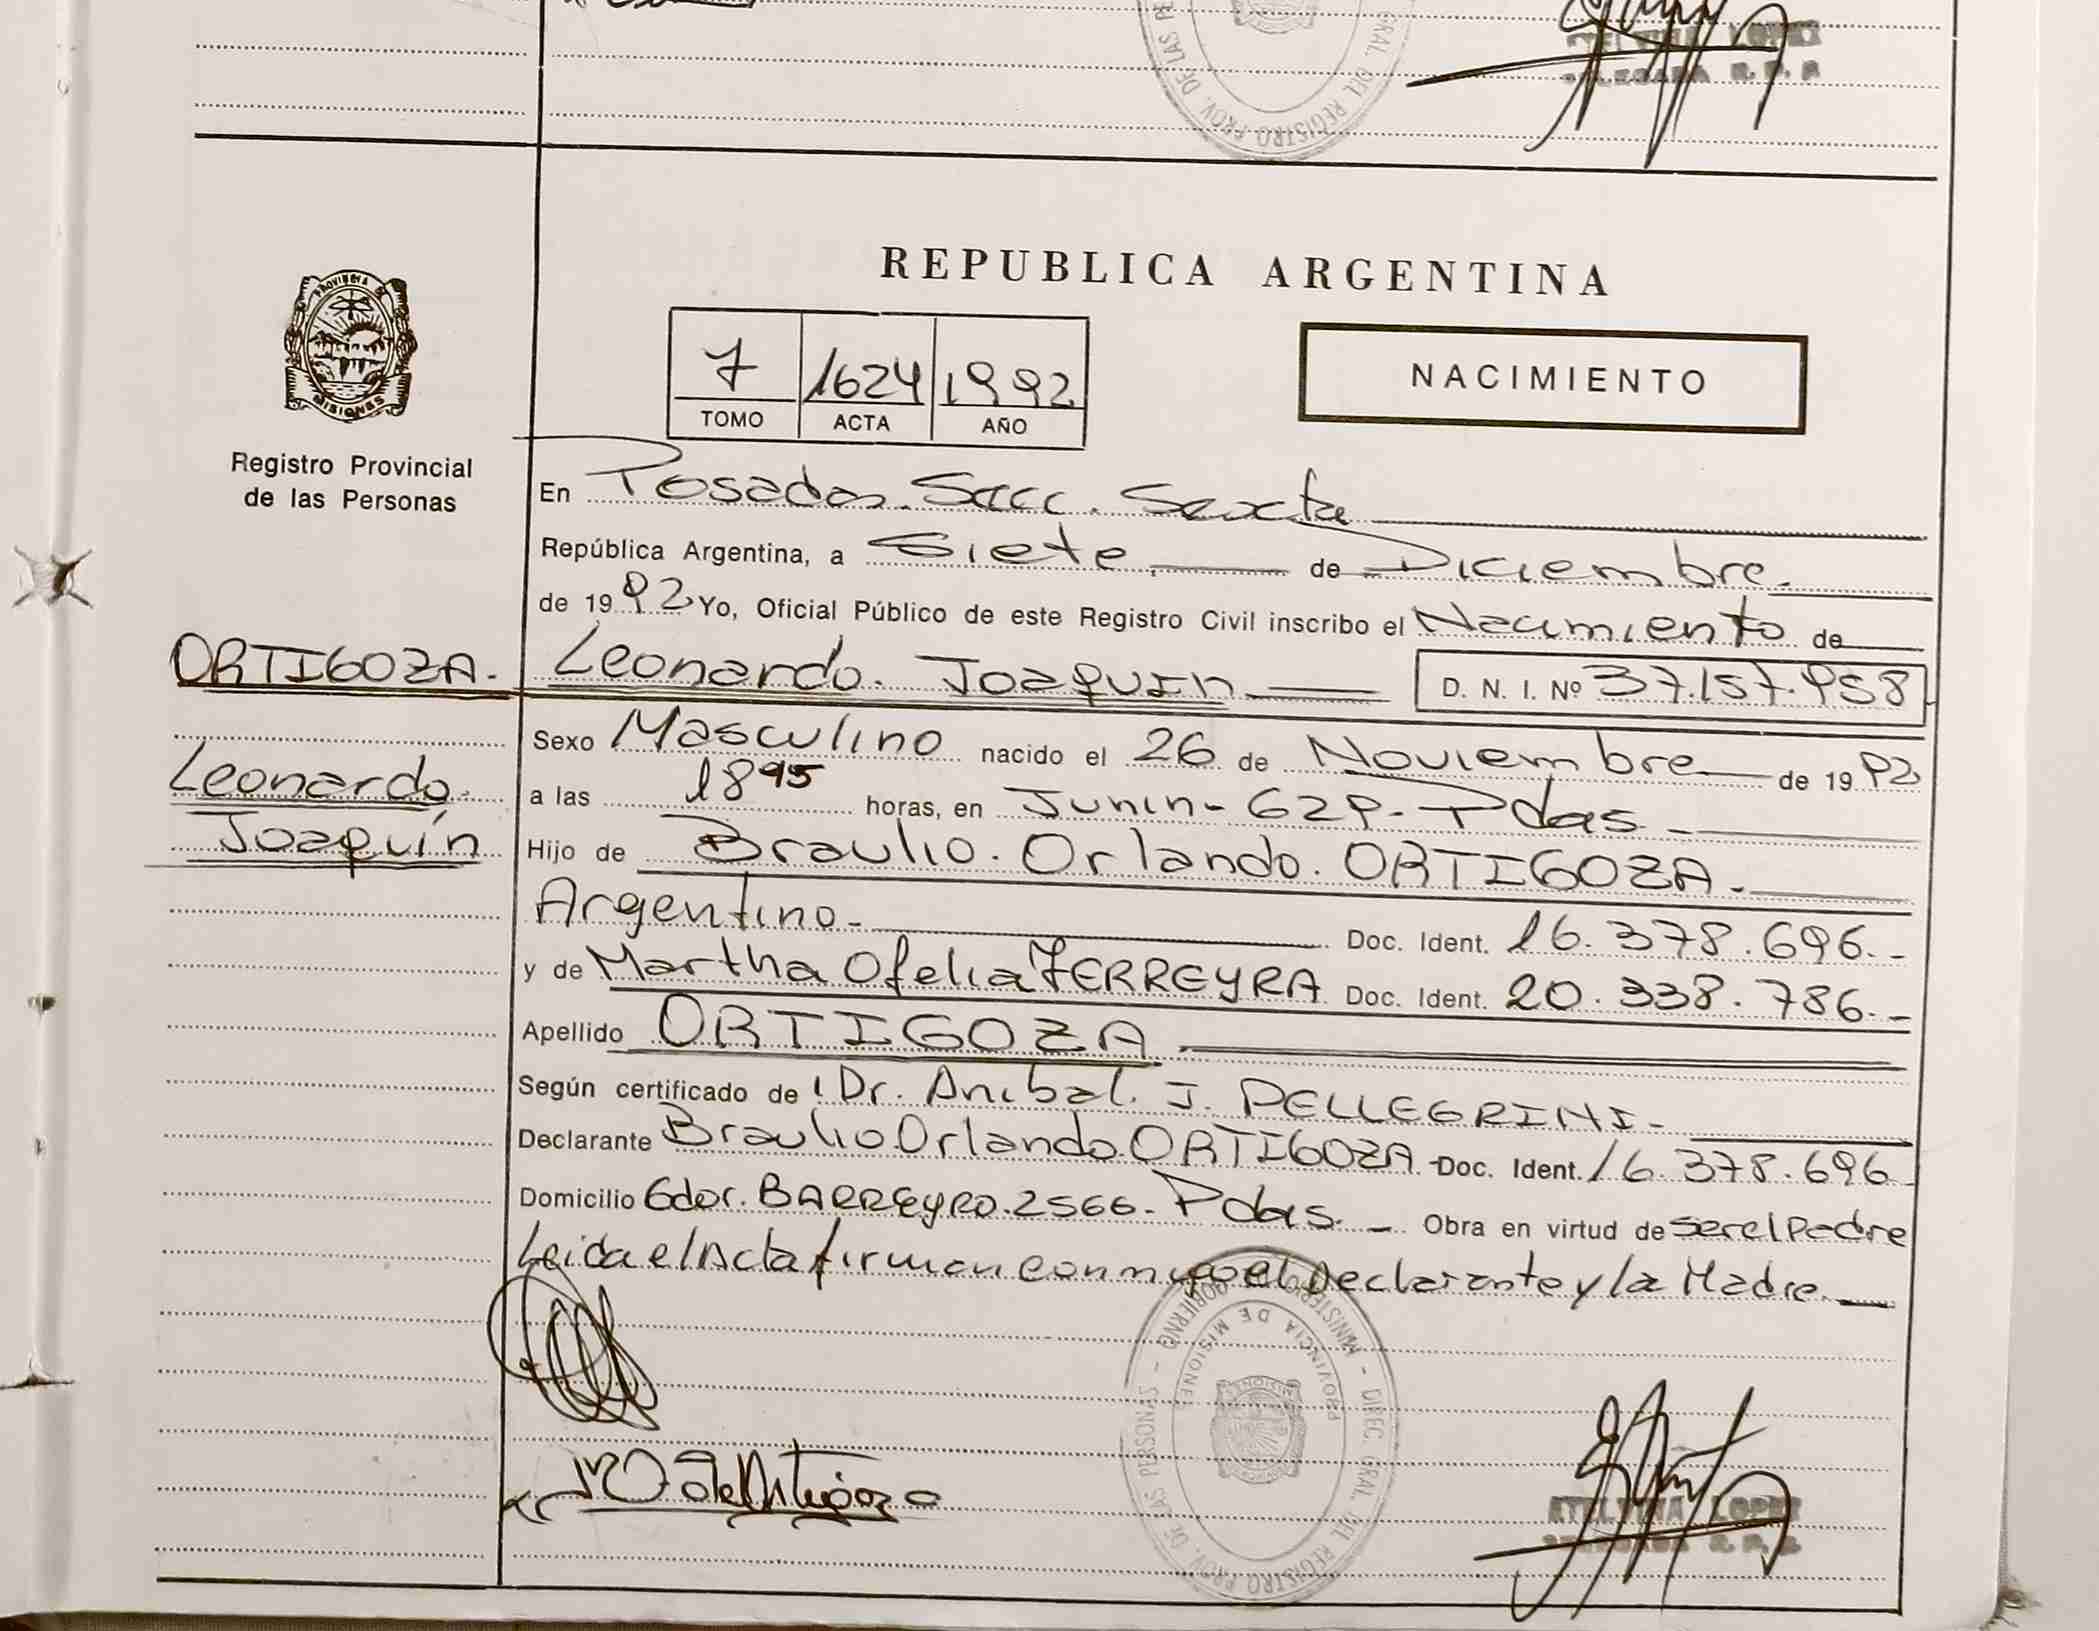 REPUBLICA ARGENTINA
PROVINCIA DE
MISIONES
Registro Provincial
de las Personas
7 1624 1992
TOMO ACTA AÑO
NACIMIENTO
En Posadas. Secc. Sexta
República Argentina, a Siete de Diciembre.
de 1992 Yo, Oficial Público de este Registro Civil inscribo el Nacimiento de
ORTIGOZA. Leonardo. Joaquin D. N. I. Nº 37.157.958
Sexo Masculino nacido el 26 de Noviembre de 1992
Leonardo.
a las 18 45 horas, en Junin - 629 - Pdas. -
Joaquín
Hijo de Braulio. Orlando. ORTIGOZA. -
Argentino. - Doc. Ident. 16.378.696. -
y de Martha Ofelia FERREYRA Doc. Ident. 20.338.786. -
Apellido ORTIGOZA
Según certificado de Dr. Anibal. J. PELLEGRINI -
Declarante Braulio Orlando ORTIGOZA - Doc. Ident. 16.378.696
Domicilio Gdor. BARREYRO. 2566. - Pdas. - Obra en virtud de ser el Padre
Leida el Acta firman conmigo el Declarante y la Madre. -
MINISTERIO GOBIERNO - DIREC. GRAL. DEL REGISTRO PROV. DE LAS PERSONAS -
PROVINCIA DE MISIONES
ETELVINA LOPEZ